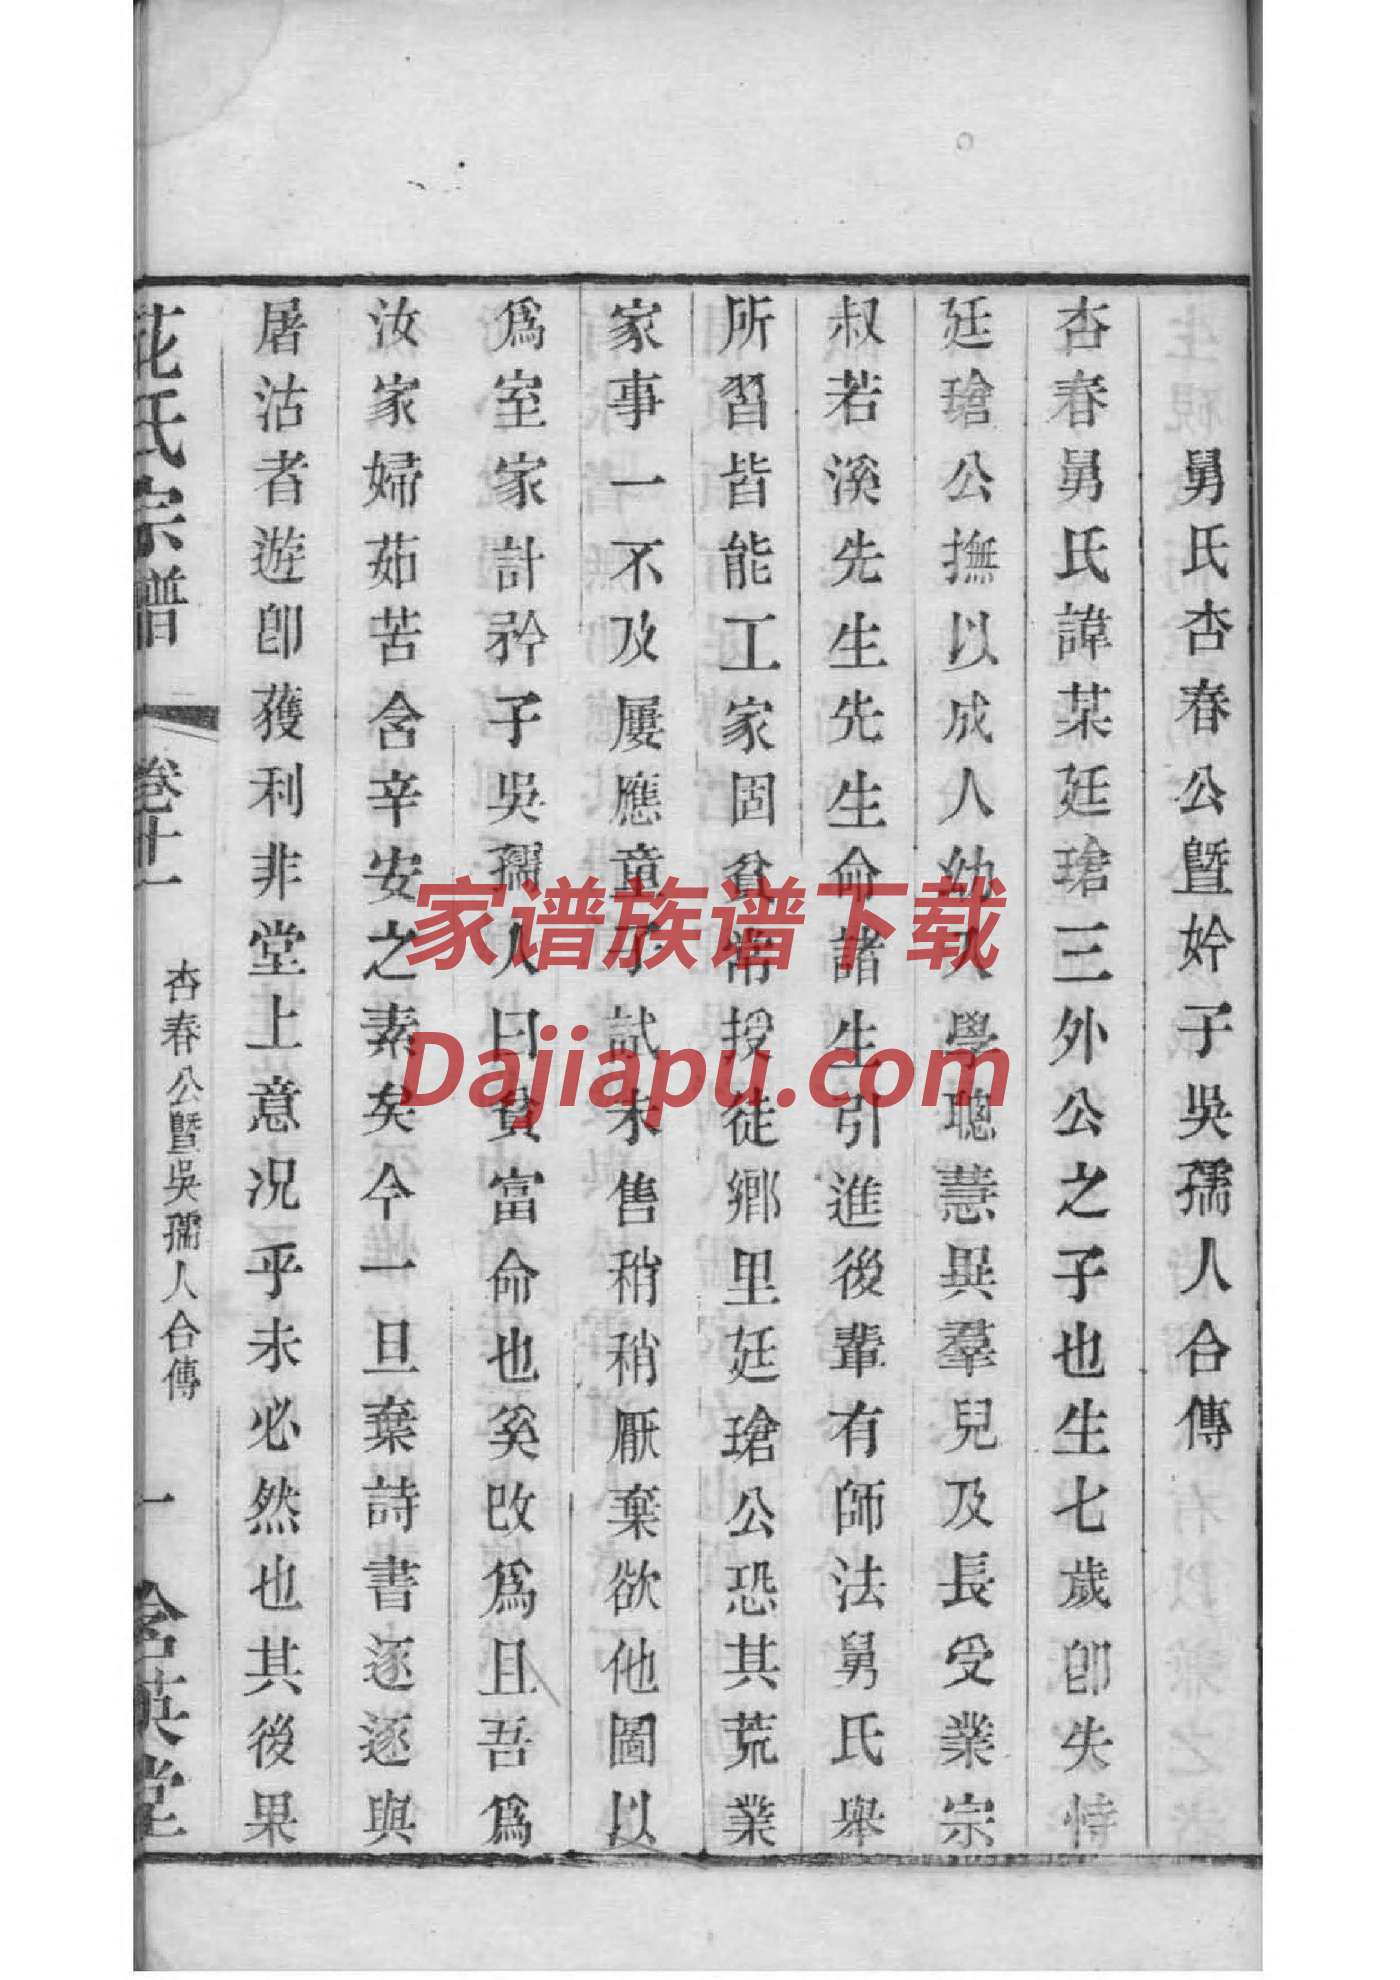 舅氏杏春公暨妗子吳孺人合傳
杏春舅氏諱某廷瑲三外公之子也生七歲卽失恃
廷瑲公撫以成人幼入學聰慧異羣兒及長受業宗
叔若溪先生先生命諸生引進後輩有師法舅氏舉
所習皆能工家固貧常授徒鄉里廷瑲公恐其荒業
家事一不及屢應童子試未售稍稍厭棄欲他圖以
爲室家計矜子吳孺人曰貧富命也奚改爲且吾爲
汝家婦茹苦含辛安之素矣今一旦棄詩書逐逐與
屠沽者遊卽獲利非堂上意况乎未必然也其後果
花氏宗譜
卷十一
杏春公暨吳孺人合傳
一
含英堂
家谱族谱下载
Dajiapu.com